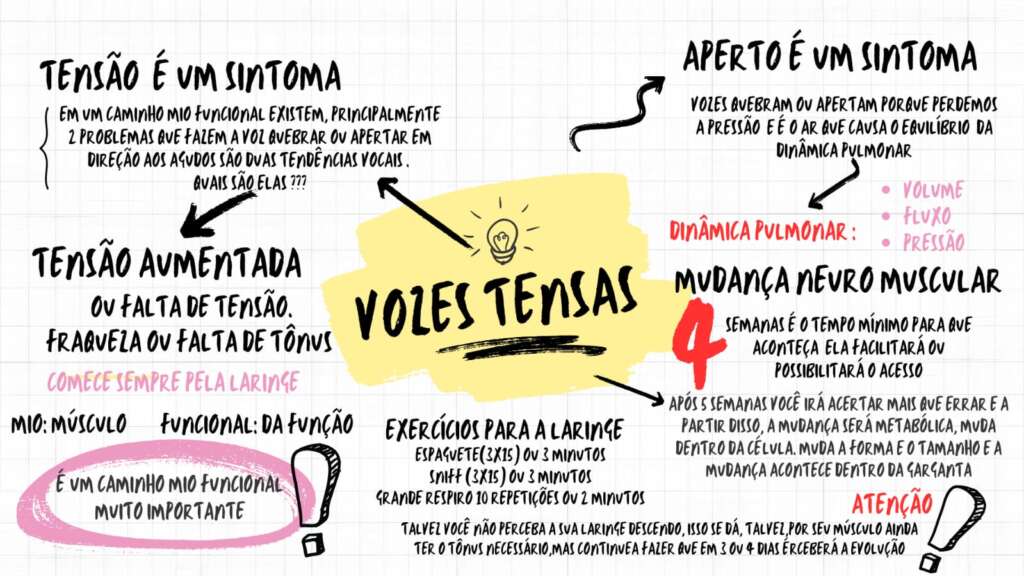 TENSÃO É UM SINTOMA
EM UM CAMINHO MIO FUNCIONAL EXISTEM, PRINCIPALMENTE
2 PROBLEMAS QUE FAZEM A VOZ QUEBRAR OU APERTAR EM
DIREÇÃO AOS AGUDOS SÃO DUAS TENDÊNCIAS VOCAIS .
QUAIS SÃO ELAS ???
TENSÃO AUMENTADA
OU FALTA DE TENSÃO.
FRAQUEZA OU FALTA DE TÔNUS
COMECE SEMPRE PELA LARINGE
MIO: MÚSCULO FUNCIONAL: DA FUNÇÃO
É UM CAMINHO MIO FUNCIONAL
MUITO IMPORTANTE
VOZES TENSAS
EXERCÍCIOS PARA A LARINGE
ESPAGUETE(3X15) OU 3 MINUTOS
SNIFF (3X15) OU 3 MINUTOS
GRANDE RESPIRO 10 REPETIÇÕES OU 2 MINUTOS
APERTO É UM SINTOMA
VOZES QUEBRAM OU APERTAM PORQUE PERDEMOS
A PRESSÃO E É O AR QUE CAUSA O EQUILÍBRIO DA
DINÂMICA PULMONAR
DINÂMICA PULMONAR :
• VOLUME
• FLUXO
• PRESSÃO
MUDANÇA NEURO MUSCULAR
4 SEMANAS É O TEMPO MÍNIMO PARA QUE
ACONTEÇA ELA FACILITARÁ OU
POSSIBILITARÁ O ACESSO
APÓS 5 SEMANAS VOCÊ IRÁ ACERTAR MAIS QUE ERRAR E A
PARTIR DISSO, A MUDANÇA SERÁ METABÓLICA, MUDA
DENTRO DA CÉLULA. MUDA A FORMA E O TAMANHO E A
MUDANÇA ACONTECE DENTRO DA GARGANTA
ATENÇÃO
TALVEZ VOCÊ NÃO PERCEBA A SUA LARINGE DESCENDO, ISSO SE DÁ, TALVEZ,POR SEU MÚSCULO AINDA
TER O TÔNUS NECESSÁRIO,MAS CONTINUEA FAZER QUE EM 3 OU 4 DIAS ERCEBERÁ A EVOLUÇÃO